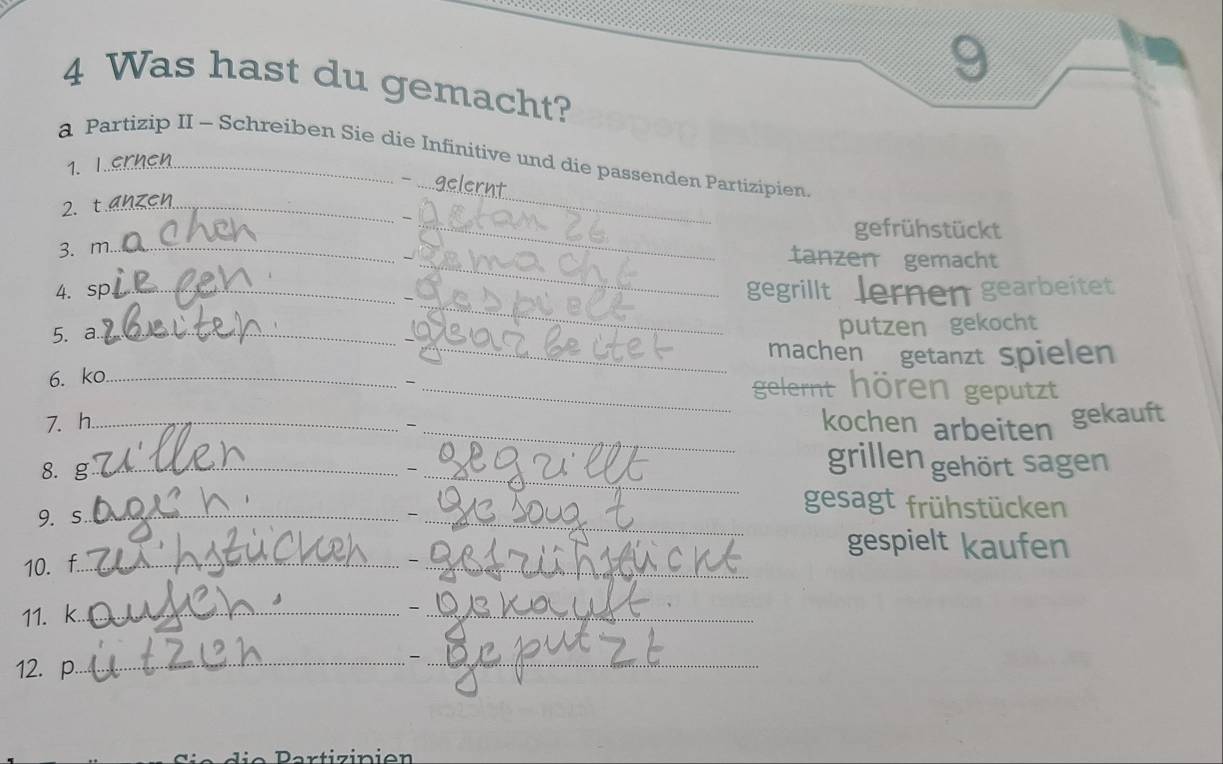 9
4 Was hast du gemacht?
a Partizip II – Schreiben Sie die Infinitive und die passenden Partizipien.
1. lernen – gelernt
2. tanzen – getanzt
3. machen – gemacht
4. spielen – gespielt
5. arbeiten – gearbeitet
6. ko –
7. h –
8. grillen – gegrillt
9. sagen – gesagt
10. frühstücken – gefrühstückt
11. kaufen – gekauft
12. pützen – geputzt
gefrühstückt
tanzen gemacht
gegrillt lernen gearbeitet
putzen gekocht
machen getanzt spielen
gelernt hören geputzt
kochen arbeiten gekauft
grillen gehört sagen
gesagt frühstücken
gespielt kaufen
Sie die Partizipien